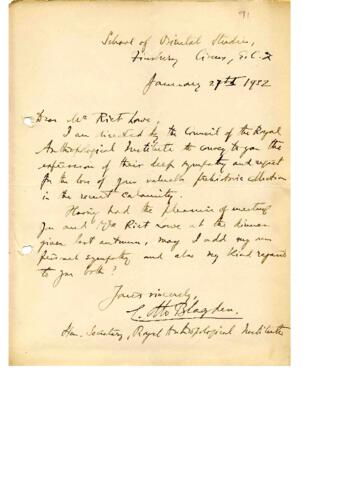 91
School of Oriental Studies,
Finsbury Circus, E.C.2
January 27th 1932
Dear Mr Riet Lowe,
I am directed by the Council of the Royal
Anthropological Institute to convey to you the
expression of their deep sympathy and regret
for the loss of your valuable prehistoric collection
in the recent calamity.
Having had the pleasure of meeting
you and Mrs Riet Lowe at the dinner
given last autumn, may I add my own
personal sympathy and also my kind regards
to you both?
Yours sincerely,
C. Otto Blagden.
Hon. Secretary, Royal Anthropological Institute